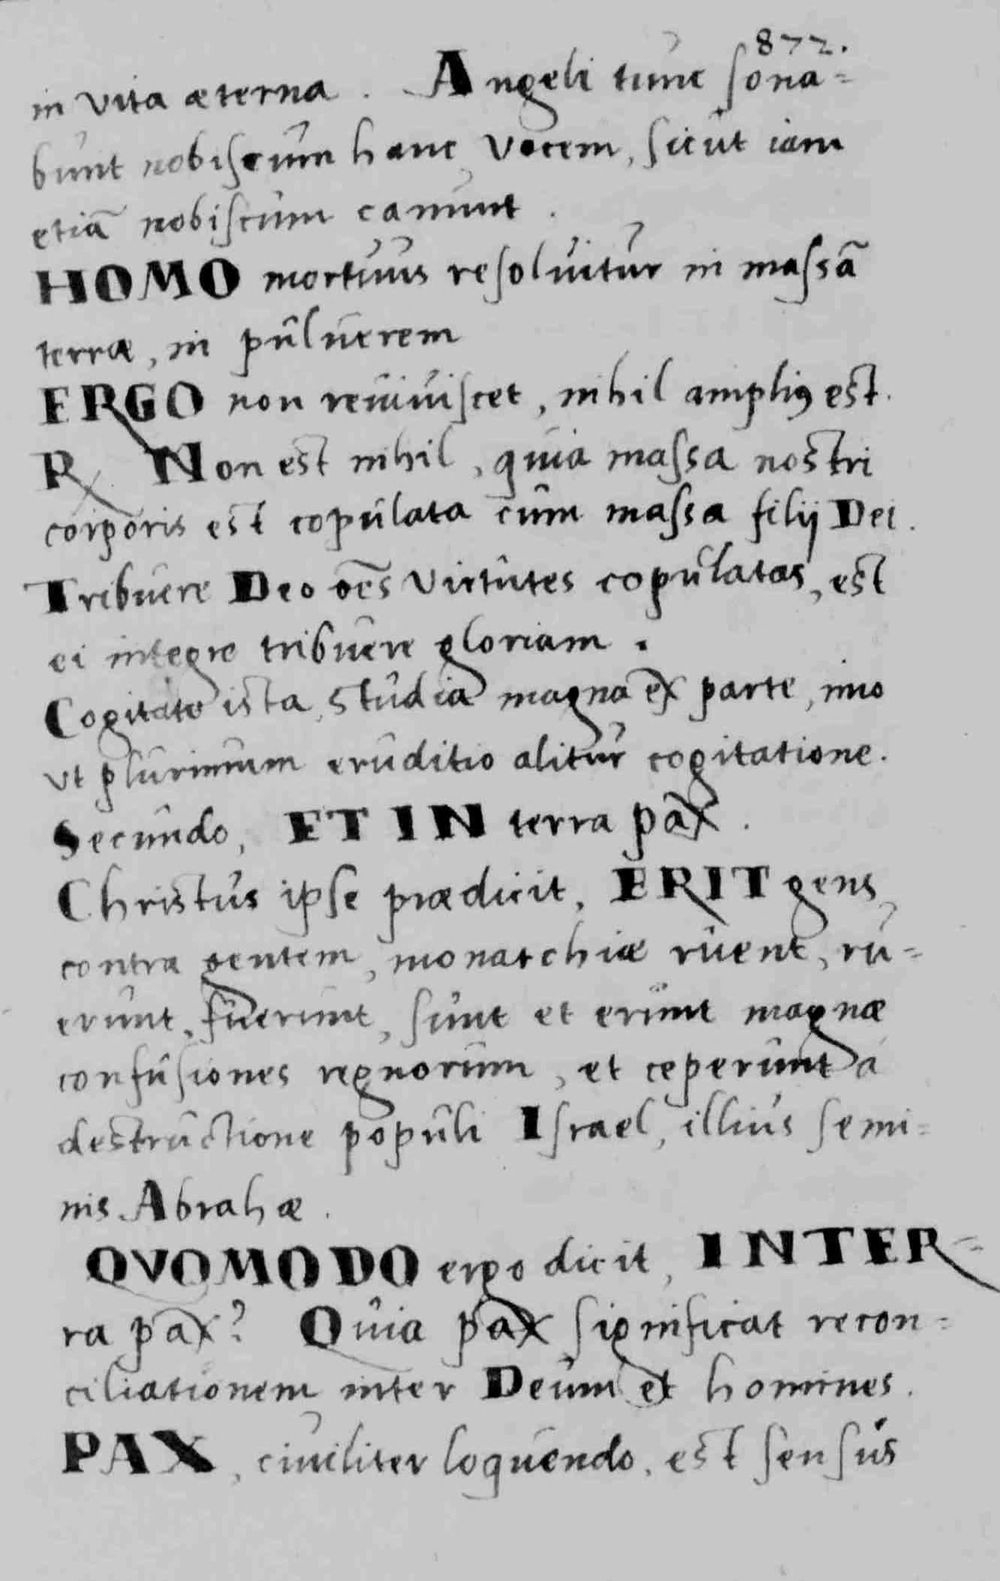 872.
in vita æterna . Angeli tunc sona=
bunt nobiscum hanc vocem, sicut iam
etiā nobiscum canunt .
HOMO mortuus resoluitur in massā
terræ, in puluerem
ERGO non reuiuiscet, nihil ampliꝰ est.
℞ Non est nihil, quia massa nostri
corporis est copulata cum massa filij Dei.
Tribuere Deo oēs virtutes copulatas, est
ei integre tribuere gloriam .
Cogitate ista, studia magna ex parte, imo
vt plurimum eruditio alitur cogitatione.
Secundo, ET IN terra pax .
Christus ipse prædicit, ERIT gens
contra gentem, monarchiæ ruent, ru=
erunt, fuerunt, sunt et erunt magnæ
confusiones regnorum, et ceperunt á
destructione populi Israel, illius semi=
nis Abrahæ .
QVOMODO ergo dicit, IN TER=
ra pax? Quia pax significat recon=
ciliationem inter Deum et homines .
PAX, ciuiliter loquendo, est sensus